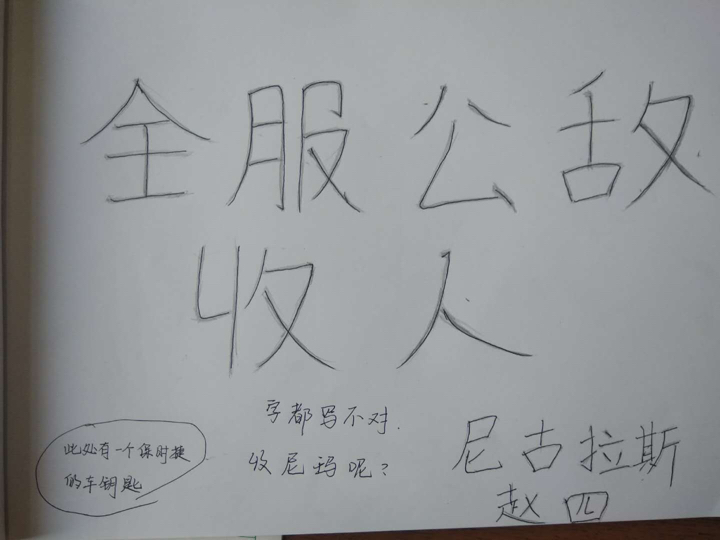 全服公敌
收人
字都写不对.
收尼玛呢?
此处有一个保时捷
的车钥匙
尼古拉斯
赵四